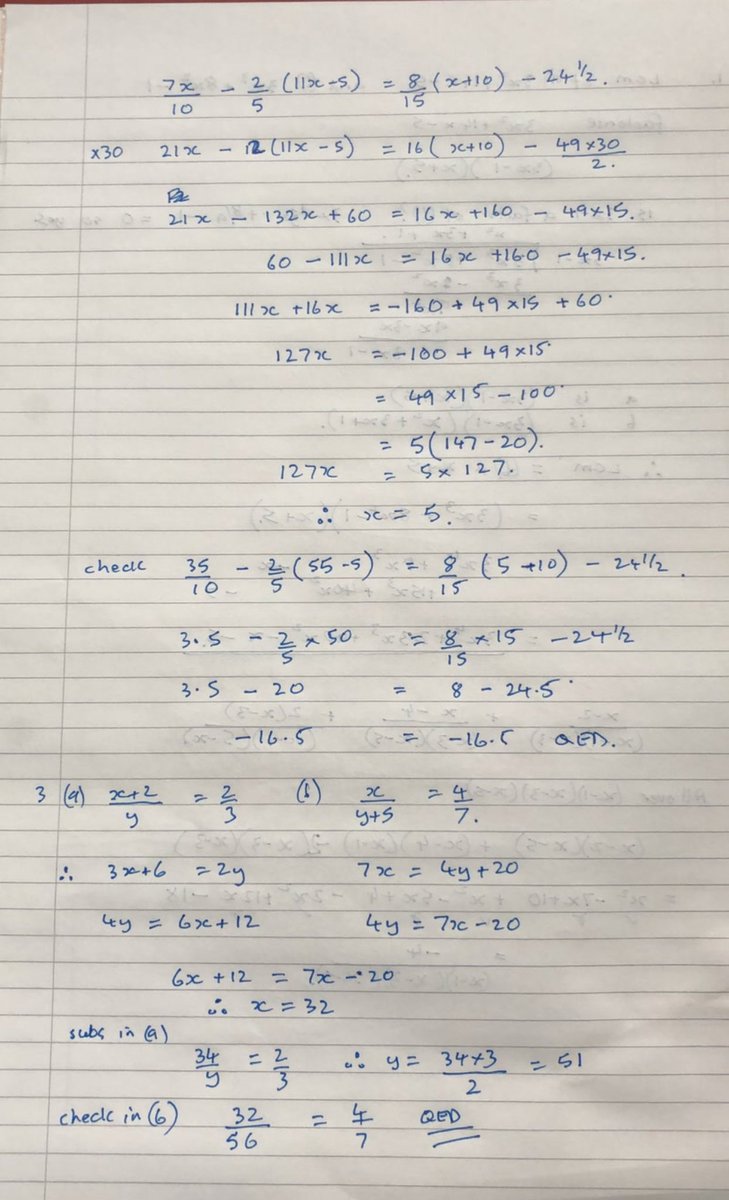 7x/10 - 2/5 (11x-5) = 8/15 (x+10) - 24 1/2.
x30 21x - 12(11x - 5) = 16(x+10) - 49x30/2.
21x - 132x + 60 = 16x + 160 - 49x15.
60 - 111x = 16x + 160 - 49x15.
111x + 16x = -160 + 49x15 + 60.
127x = -100 + 49x15
= 49x15 - 100
= 5(147-20).
127x = 5x127.
∴ x = 5.
check 35/10 - 2/5 (55-5) = 8/15 (5+10) - 24 1/2.
3.5 - 2/5 x 50 = 8/15 x 15 - 24 1/2
3.5 - 20 = 8 - 24.5
-16.5 = -16.5 QED.
3 (a) x+2/y = 2/3 (b) x/y+5 = 4/7.
∴ 3x+6 = 2y 7x = 4y+20
4y = 6x+12 4y = 7x-20
6x+12 = 7x-20
∴ x = 32
subs in (a)
34/y = 2/3 ∴ y = 34x3/2 = 51
check in (b) 32/56 = 4/7 QED